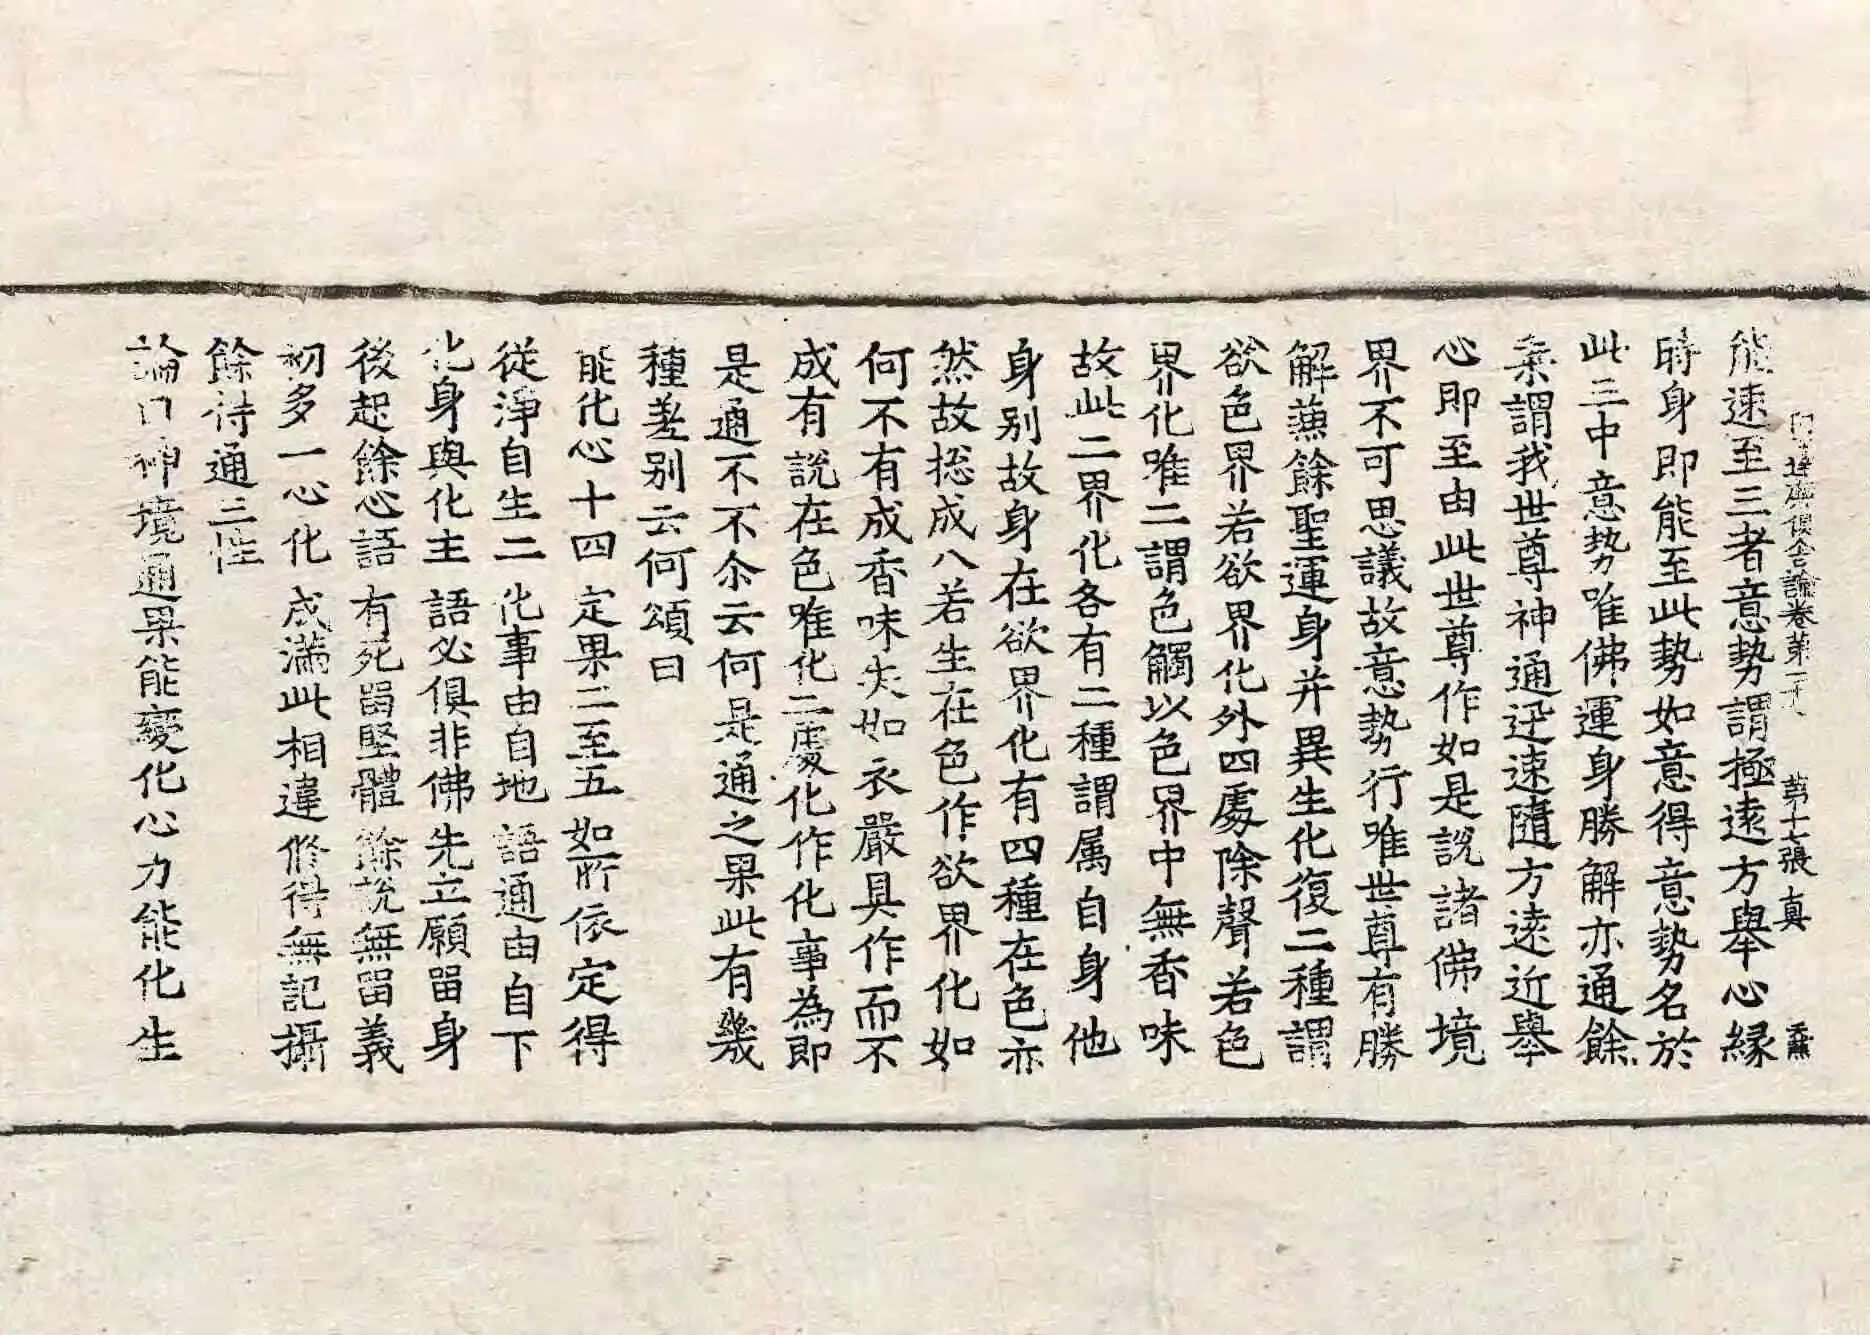 阿毗達磨俱舍論卷第二十七　第十七張　真
能速至三者意勢謂極遠方舉心緣
時身即能至此勢如意得意勢名於
此三中意勢唯佛運身勝解亦通餘
乘謂我世尊神通迅速隨方遠近舉
心即至由此世尊作如是說諸佛境
界不可思議故意勢行唯世尊有勝
解兼餘聖運身并異生化復二種謂
欲色界若欲界化外四處除聲若色
界化唯二謂色觸以色界中無香味
故此二界化各有二種謂属自身他
身別故身在欲界化有四種在色亦
然故捴成八若生在色作欲界化如
何不有成香味失如衣嚴具作而不
成有說在色唯化二處化作化事為即
是通不不尒云何是通之果此有幾
種差別云何頌曰
能化心十四　定果二至五　如所依定得
從淨自生二　化事由自地　語通由自下
化身與化主　語必俱非佛　先立願留身
後起餘心語　有死留堅體　餘說無留義
初多一心化　成滿此相違　修得無記攝
餘得通三性
論曰神境通果能變化心力能化生